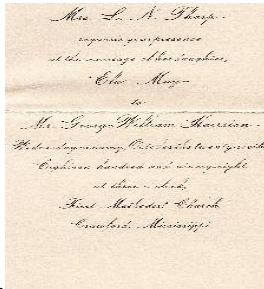 Mrs. L. N. Tharp
requests your presence
at the marriage of her daughter,
May
to
Mr. George William
Wednesday evening, October
Eighteen hundred and ninety-eight
at o'clock,
First Methodist Church
Crawford, Mississippi